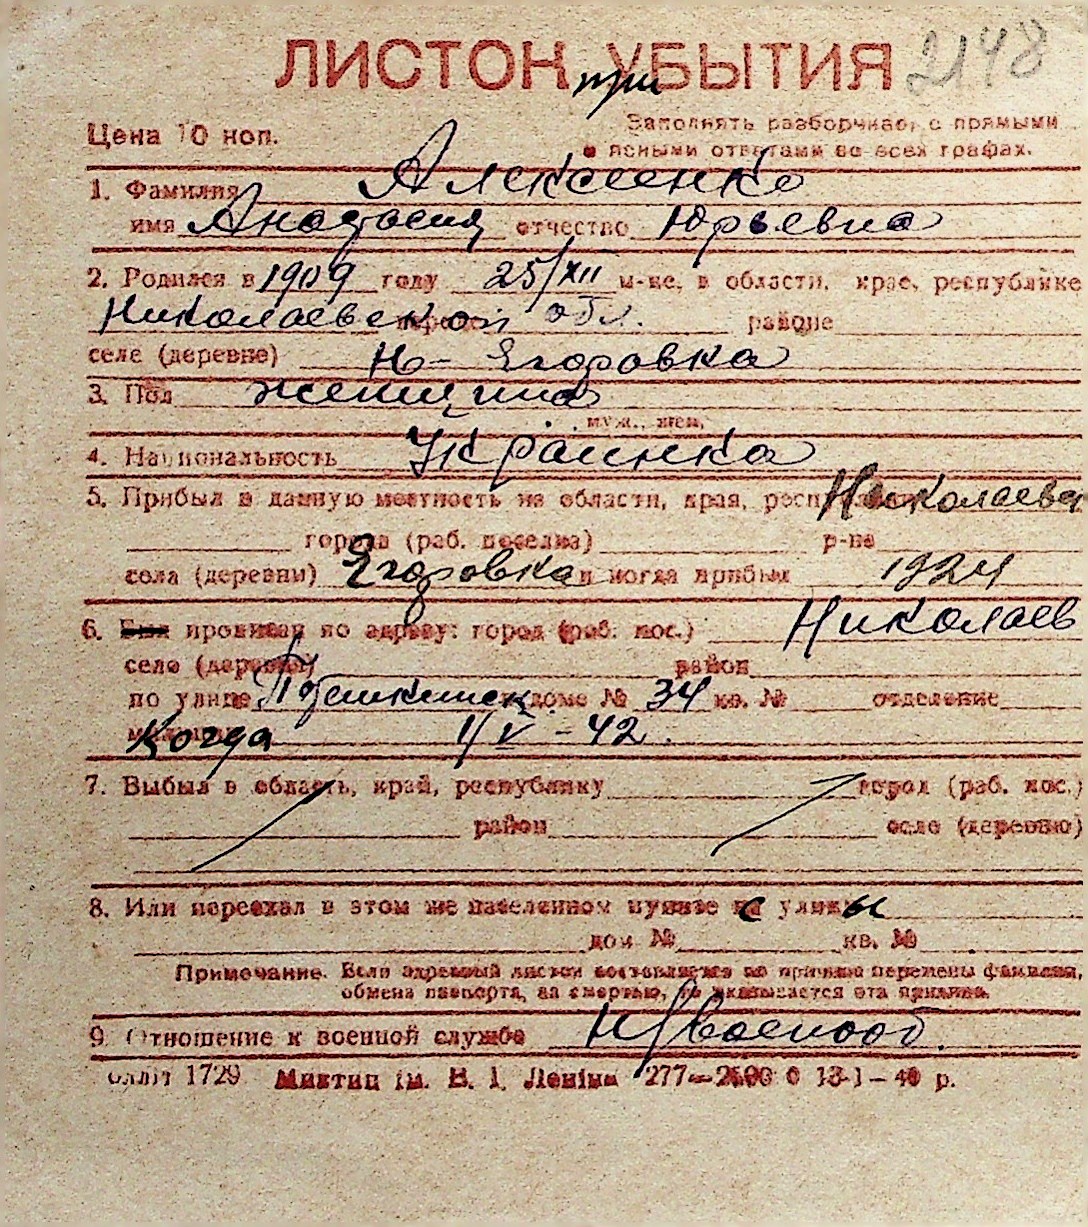 ЛИСТОК при УБЫТИЯ 2148
Цена 10 коп.
Заполнять разборчиво, с прямыми
и ясными ответами во всех графах.
1. Фамилия Алексеенко
имя Анастасия отчество Юрьевна
2. Родился в 1909 году 25/XII м-це, в области, крае, республике
Николаевской обл. городе районе
селе (деревне) Н- Егоровка
3. Пол женщина
муж., жен.
4. Национальность Украинка
5. Прибыл в данную местность из области, края, республики Николаевск
города (раб. поселка) р-на
села (деревни) Егоровка и когда прибыл 1924
6. Был проживал по адресу: город (раб. пос.) Николаев
село (деревня) район
по улице Пушкинск доме № 34 кв. № отделение
милиции Когда 1/V - 42.
7. Выбыл в область, край, республику город (раб. пос.)
район село (деревню)
8. Или переехал в этом же населенном пункте с улицы
дом № кв. №
Примечание. Если адресный листок составляется по причине перемены фамилии,
обмена паспорта, за смертью, то указывается эта причина.
9. Отношение к военной службе н/военнооб.
1729 Миктип ім. В. І. Леніна 277—2500 0 13-1—40 р.